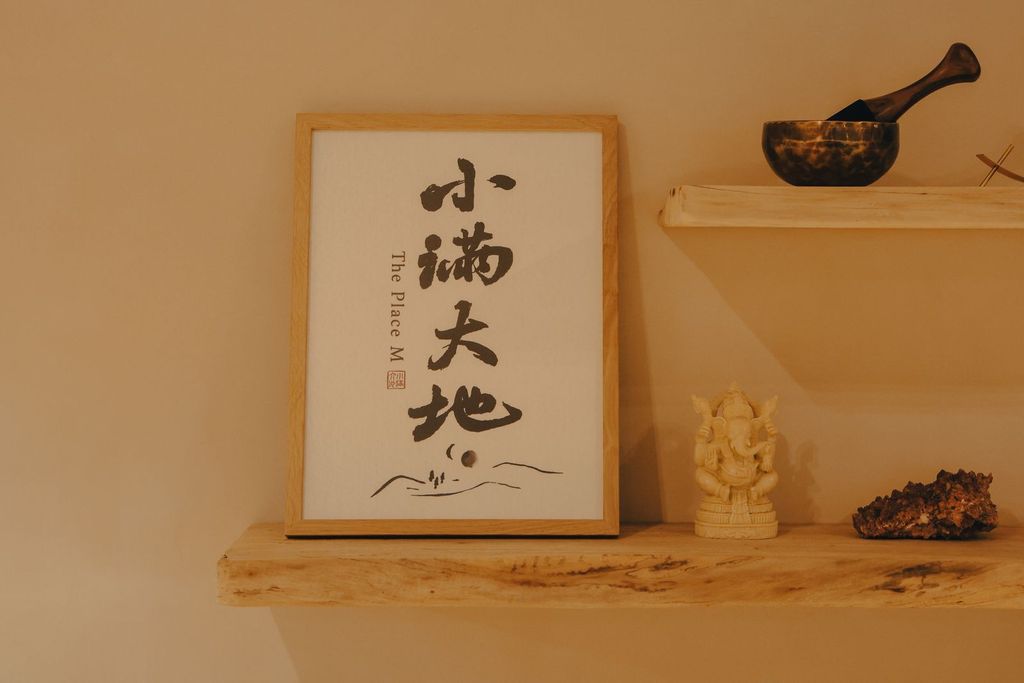 小满大地
The Place M